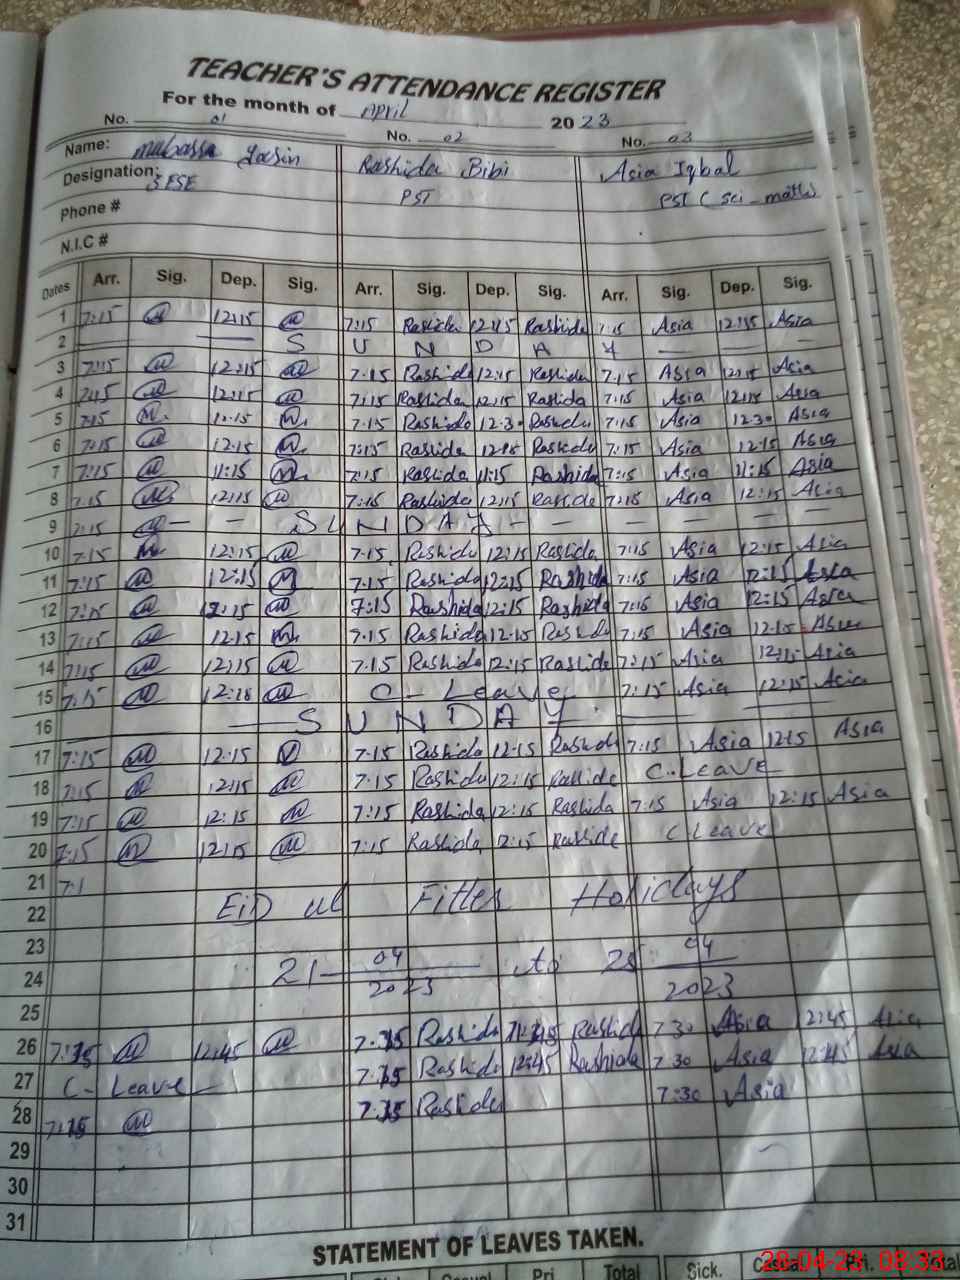 TEACHER'S ATTENDANCE REGISTER
For the month of April 2023
No. 01 No. 02 No. 03
Name: Yasin Rashida Bibi Asia Iqbal
Designation: SESE PST PST (sci-maths)
Phone #
N.I.C #
Dates Arr. Sig. Dep. Sig. Arr. Sig. Dep. Sig. Arr. Sig. Dep. Sig.
1 7:15 12:15 7:15 Rashida 12:15 Rashida 7:15 Asia 12:15 Asia
2 — — S U N D A Y — — —
3 7:15 12:15 7.15 Rashida 12:15 Rashida 7.15 Asia 12:15 Asia
4 7:15 12:15 7:15 Rashida 12:15 Rashida 7:15 Asia 12:15 Asia
5 7:15 M. 12:15 M. 7.15 Rashida 12.30 Rashida 7:15 Asia 12.30 Asia
6 7:15 12.15 M. 7:15 Rashida 12:15 Rashida 7:15 Asia 12.15 Asia
7 7:15 11:15 M. 7:15 Rashida 11:15 Rashida 7:15 Asia 11:15 Asia
8 7:15 12:15 7:15 Rashida 12:15 Rashida 7:15 Asia 12:15 Asia
9 7:15 — — S U N D A Y — — — — —
10 7:15 M. 12:15 7.15 Rashida 12:15 Rashida 7:15 Asia 12:15 Asia
11 7:15 12:15 M 7.15 Rashida 12:15 Rashida 7:15 Asia 12:15 Asia
12 7:15 12:15 7:15 Rashida 12:15 Rashida 7:15 Asia 12:15 Asia
13 7:15 12.15 M. 7.15 Rashida 12.15 Rashida 7:15 Asia 12.15 Asia
14 7:15 12:15 7.15 Rashida 12:15 Rashida 7:15 Asia 12:15 Asia
15 7:15 12:18 C- Leave 7:15 Asia 12:15 Asia
16 — S U N D A Y — — —
17 7:15 12.15 7.15 Rashida 12.15 Rashida 7:15 Asia 12:15 Asia
18 7:15 12:15 7.15 Rashida 12:15 Rashida C.Leave
19 7:15 12:15 7:15 Rashida 12:15 Rashida 7:15 Asia 12:15 Asia
20 7:15 12:15 7:15 Rashida 12:15 Rashida C Leave
21 7:1
22 EiD ul Fitter Holidays
23
24 21- 04/2023 to 25 04/2023
25
26 12:45 Rashida Rashida 7 30 Asia 12:45 Asia
27 C- Leave — Rashida 12:45 Rashida 7 30 Asia 12:45 Asia
28 Rashida 7:30 Asia
29
30
31
STATEMENT OF LEAVES TAKEN.
Pri Total Sick.
28-04-23 08:33